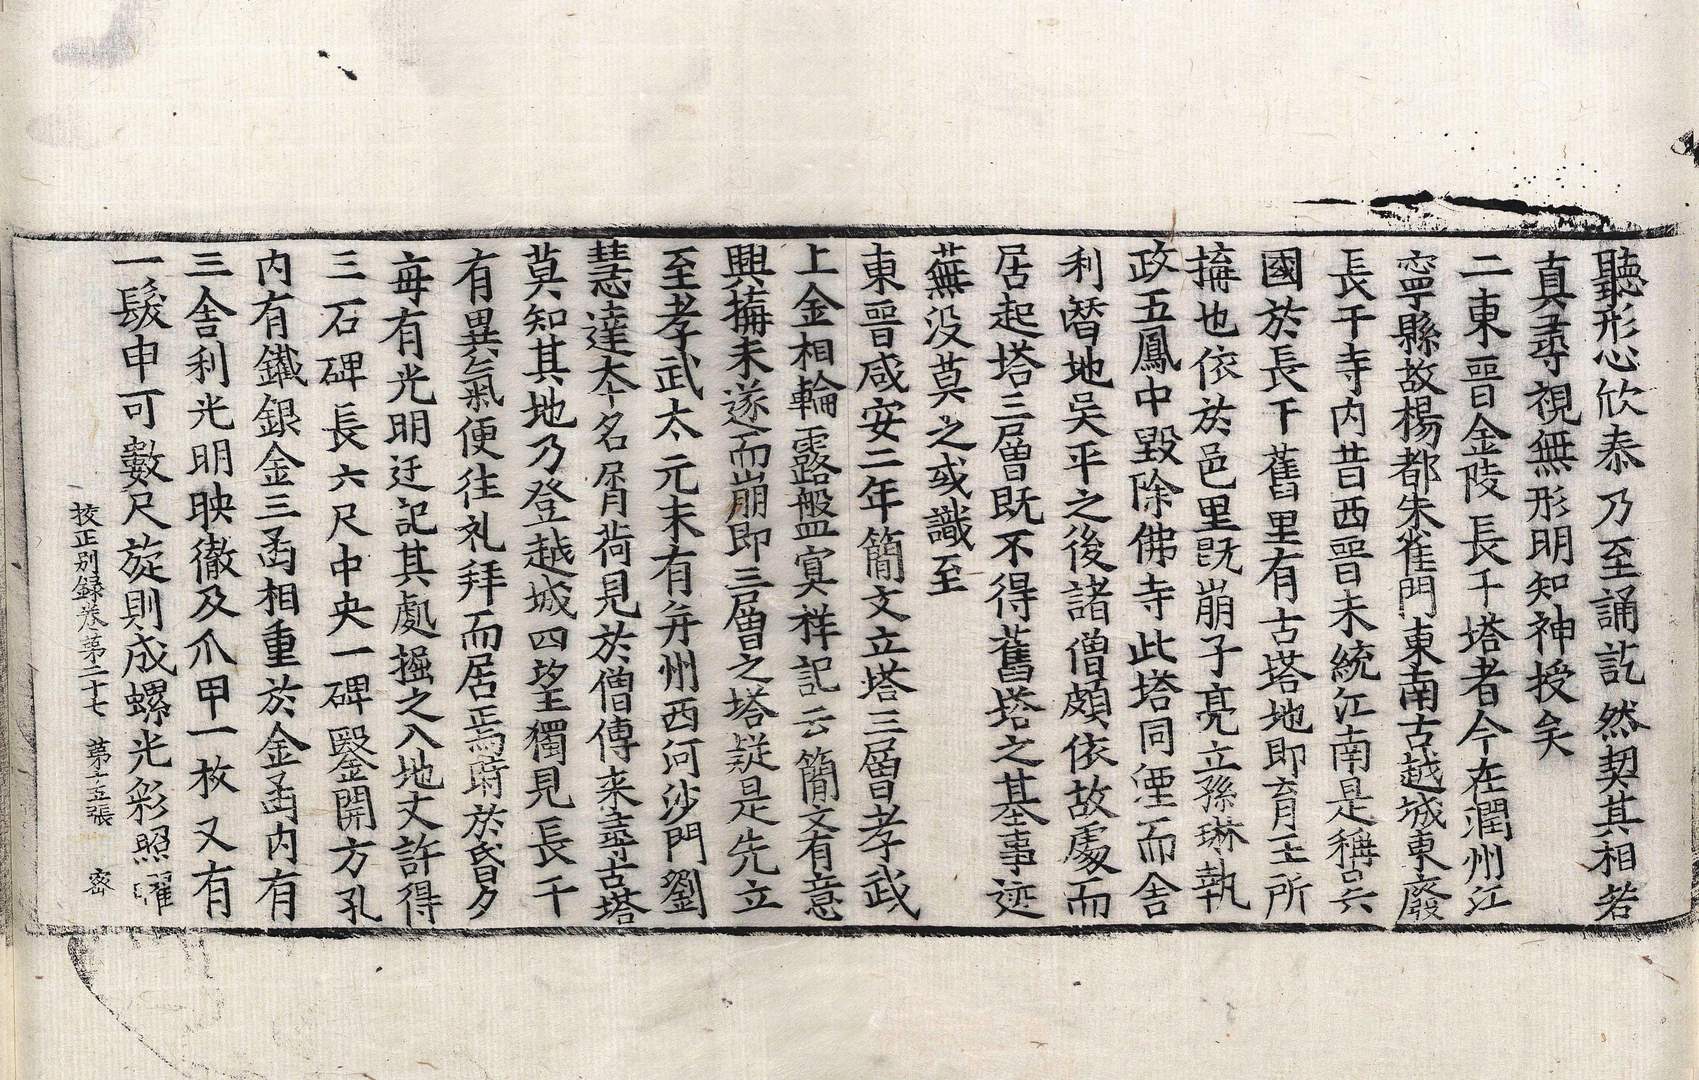 聽形心欣泰乃至誦訖然契其相若
真尋視無形明知神授矣
二東晉金陵長干塔者今在潤州江
寧縣故楊都朱雀門東南古越城東廢
長干寺内昔西晉未統江南是稱吳
國於長干舊里有古塔地即育王所
搆也依於邑里既崩子亮立孫琳執
政五鳳中毀除佛寺此塔同湮而舍
利潛地吳平之後諸僧頗依故處而
居起塔三層既不得舊塔之基事迹
蕪没莫之或識至
東晉咸安二年簡文立塔三層孝武
上金相輪露盤寘祥記云簡文有意
興搆未遂而崩即三層之塔疑是先立
至孝武太元末有并州西河沙門劉
慧達本名屑荷見於僧傳来尋古塔
莫知其地乃登越城四望獨見長干
有異氣便往礼拜而居焉時於昏夕
每有光明迂記其處掘之入地丈許得
三石碑長六尺中央一碑鑿開方孔
内有鐵銀金三函相重於金函内有
三舍利光明映徹及爪甲一枚又有
一髮申可數尺旋則成螺光彩照曜
挍正別録卷第二十七 第十五張 密